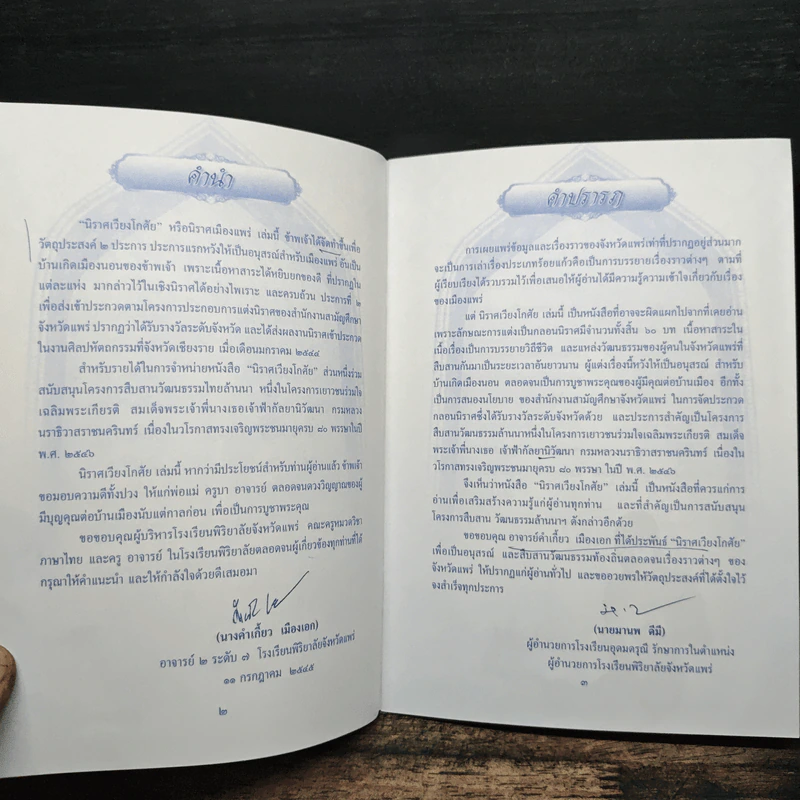 คำนำ
"นิราศเวียงโกศัย" หรือนิราศเมืองแพร่ เล่มนี้ ข้าพเจ้าได้จัดทำขึ้นเพื่อ
วัตถุประสงค์ ๒ ประการ ประการแรกหวังให้เป็นอนุสรณ์สำหรับเมืองแพร่ อันเป็น
บ้านเกิดเมืองนอนของข้าพเจ้า เพราะเนื้อหาสาระได้หยิบยกของดี ที่ปรากฏใน
แต่ละแห่ง มากล่าวไว้ในเชิงนิราศได้อย่างไพเราะ และครบถ้วน ประการที่ ๒
เพื่อส่งเข้าประกวดตามโครงการประกอบการแต่งนิราศของสำนักงานสามัญศึกษา
จังหวัดแพร่ ปรากฏว่าได้รับรางวัลระดับจังหวัด และได้ส่งผลงานนิราศเข้าประกวด
ในงานศิลปหัตถกรรมที่จังหวัดเชียงราย เมื่อเดือนมกราคม ๒๕๔๔
สำหรับรายได้ในการจำหน่ายหนังสือ "นิราศเวียงโกศัย" ส่วนหนึ่งร่วม
สนับสนุนโครงการสืบสานวัฒนธรรมไทยล้านนา หนึ่งในโครงการเยาวชนร่วมใจ
เฉลิมพระเกียรติ สมเด็จพระเจ้าพี่นางเธอเจ้าฟ้ากัลยาณิวัฒนา กรมหลวง
นราธิวาสราชนครินทร์ เนื่องในวโรกาสทรงเจริญพระชนมายุครบ ๘๐ พรรษาในปี
พ.ศ. ๒๕๔๖
นิราศเวียงโกศัย เล่มนี้ หากว่ามีประโยชน์สำหรับท่านผู้อ่านแล้ว ข้าพเจ้า
ขอมอบความดีทั้งปวง ให้แก่พ่อแม่ ครูบา อาจารย์ ตลอดจนดวงวิญญาณของผู้
มีบุญคุณต่อบ้านเมืองนับแต่กาลก่อน เพื่อเป็นการบูชาพระคุณ
ขอขอบคุณผู้บริหารโรงเรียนพิริยาลัยจังหวัดแพร่ คณะครูหมวดวิชา
ภาษาไทย และครู อาจารย์ ในโรงเรียนพิริยาลัยตลอดจนผู้เกี่ยวข้องทุกท่านที่ได้
กรุณาให้คำแนะนำ และให้กำลังใจด้วยดีเสมอมา
(นางคำเกี้ยว เมืองเอก)
อาจารย์ ๒ ระดับ ๗ โรงเรียนพิริยาลัยจังหวัดแพร่
๑๑ กรกฎาคม ๒๕๔๕
๒
คำปรารภ
การเผยแพร่ข้อมูลและเรื่องราวของจังหวัดแพร่เท่าที่ปรากฏอยู่ส่วนมาก
จะเป็นการเล่าเรื่องประเภทร้อยแก้วคือเป็นการบรรยายเรื่องราวต่างๆ ตามที่
ผู้เรียบเรียงได้รวบรวมไว้เพื่อเสนอให้ผู้อ่านได้มีความรู้ความเข้าใจเกี่ยวกับเรื่อง
ของเมืองแพร่
แต่ นิราศเวียงโกศัย เล่มนี้ เป็นหนังสือที่อาจจะผิดแผกไปจากที่เคยอ่าน
เพราะลักษณะการแต่งเป็นกลอนนิราศมีจำนวนทั้งสิ้น ๖๐ บท เนื้อหาสาระใน
เนื้อเรื่องเป็นการบรรยายวิถีชีวิต และแหล่งวัฒนธรรมของผู้คนในจังหวัดแพร่ที่
สืบสานกันมาเป็นระยะเวลาอันยาวนาน ผู้แต่งเรื่องนี้หวังให้เป็นอนุสรณ์ สำหรับ
บ้านเกิดเมืองนอน ตลอดจนเป็นการบูชาพระคุณของผู้มีคุณต่อบ้านเมือง อีกทั้ง
เป็นการสนองนโยบาย ของสำนักงานสามัญศึกษาจังหวัดแพร่ ในการจัดประกวด
กลอนนิราศซึ่งได้รับรางวัลระดับจังหวัดด้วย และประการสำคัญเป็นโครงการ
สืบสานวัฒนธรรมล้านนาหนึ่งในโครงการเยาวชนร่วมใจเฉลิมพระเกียรติ สมเด็จ
พระเจ้าพี่นางเธอ เจ้าฟ้ากัลยานิวัฒนา กรมหลวงนราธิวาสราชนครินทร์ เนื่องใน
วโรกาสทรงเจริญพระชนมายุครบ ๘๐ พรรษา ในปี พ.ศ. ๒๕๔๖
จึงเห็นว่าหนังสือ "นิราศเวียงโกศัย" เล่มนี้ เป็นหนังสือที่ควรแก่การ
อ่านเพื่อเสริมสร้างความรู้แก่ผู้อ่านทุกท่าน และที่สำคัญเป็นการสนับสนุน
โครงการสืบสาน วัฒนธรรมล้านนาฯ ดังกล่าวอีกด้วย
ขอขอบคุณ อาจารย์คำเกี้ยว เมืองเอก ที่ได้ประพันธ์ "นิราศเวียงโกศัย"
เพื่อเป็นอนุสรณ์ และสืบสานวัฒนธรรมท้องถิ่นตลอดจนเรื่องราวต่างๆ ของ
จังหวัดแพร่ ให้ปรากฏแก่ผู้อ่านทั่วไป และขออวยพรให้วัตถุประสงค์ที่ได้ตั้งใจไว้
จงสำเร็จทุกประการ
(นายมานพ ดีมี)
ผู้อำนวยการโรงเรียนอุดมดรุณี รักษาการในตำแหน่ง
ผู้อำนวยการโรงเรียนพิริยาลัยจังหวัดแพร่
๓